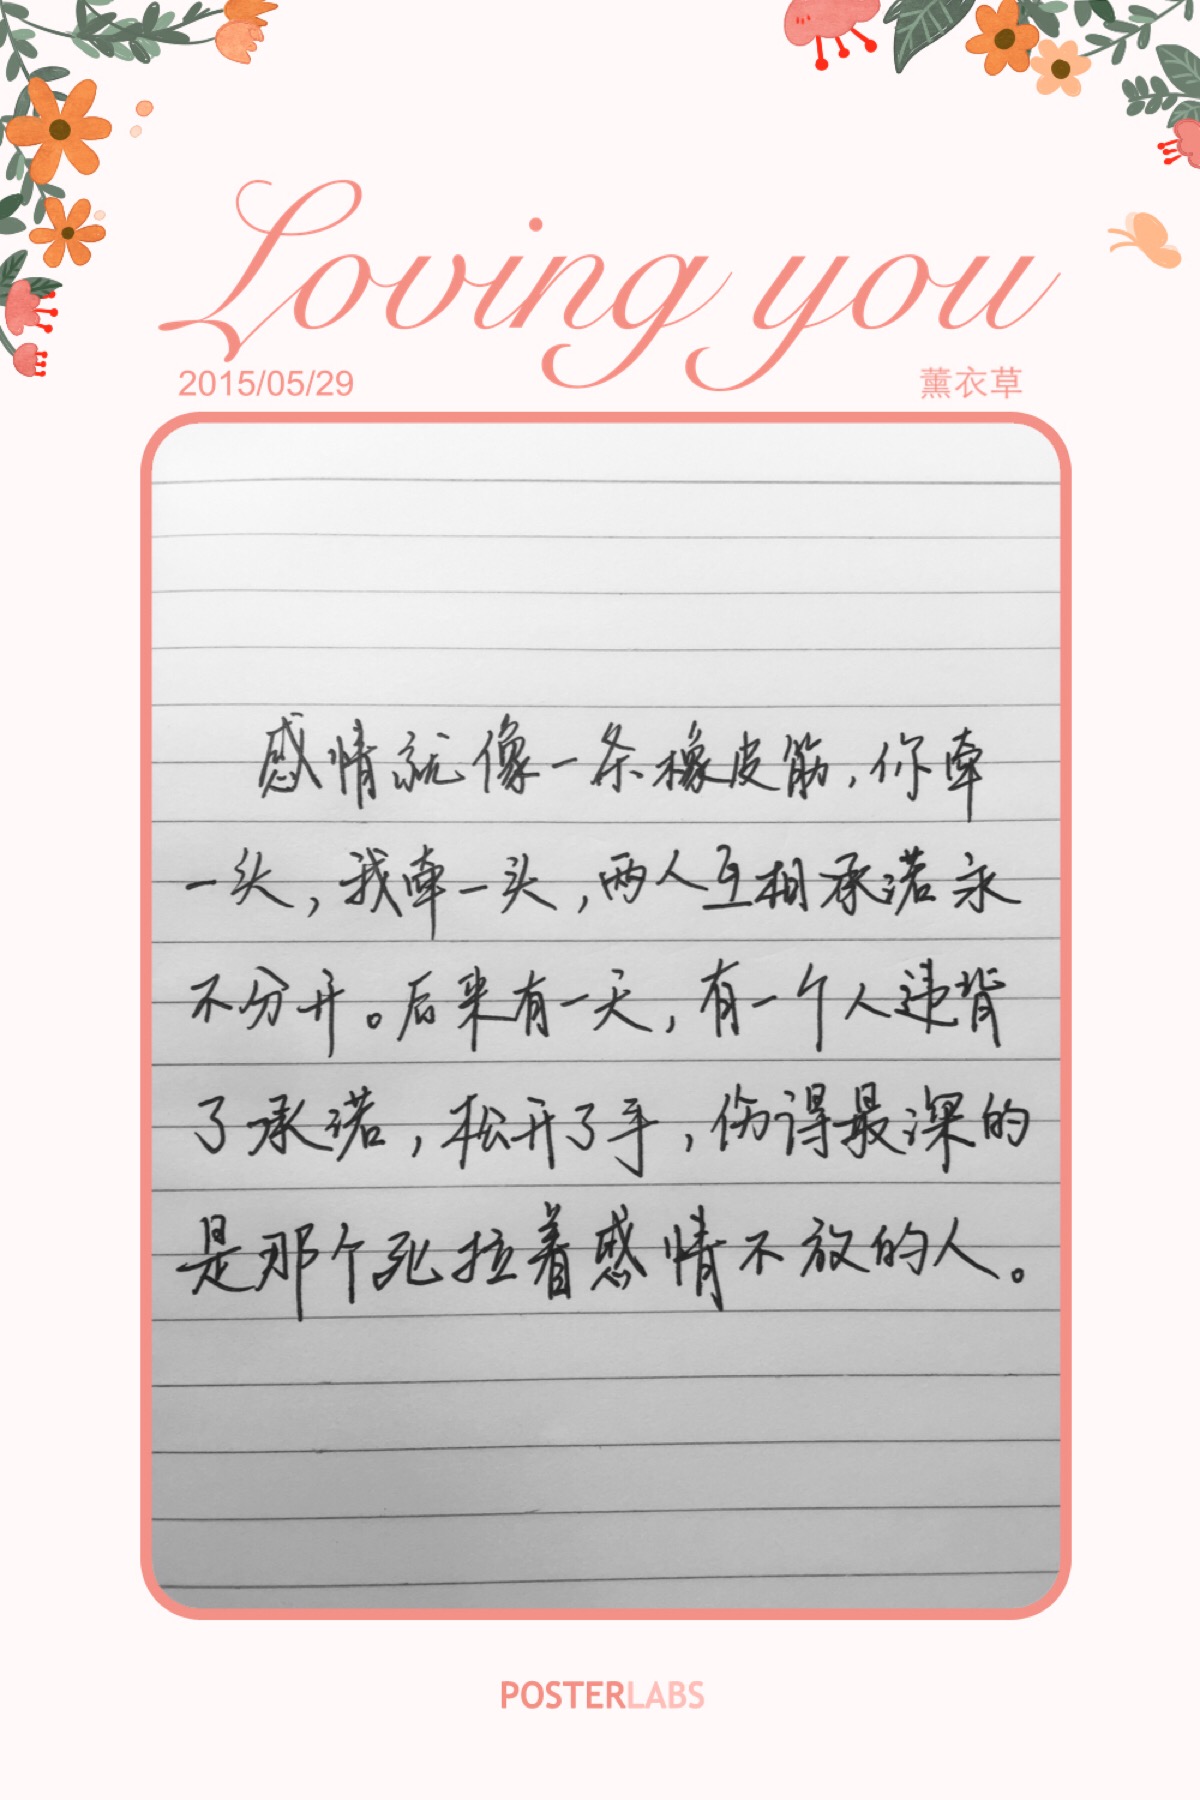 Loving you
2015/05/29 薰衣草
感情就像一条橡皮筋，你牵
一头，我牵一头，两人互相承诺永
不分开。后来有一天，有一个人违背
了承诺，松开了手，伤得最深的
是那个死拉着感情不放的人。
POSTERLABS